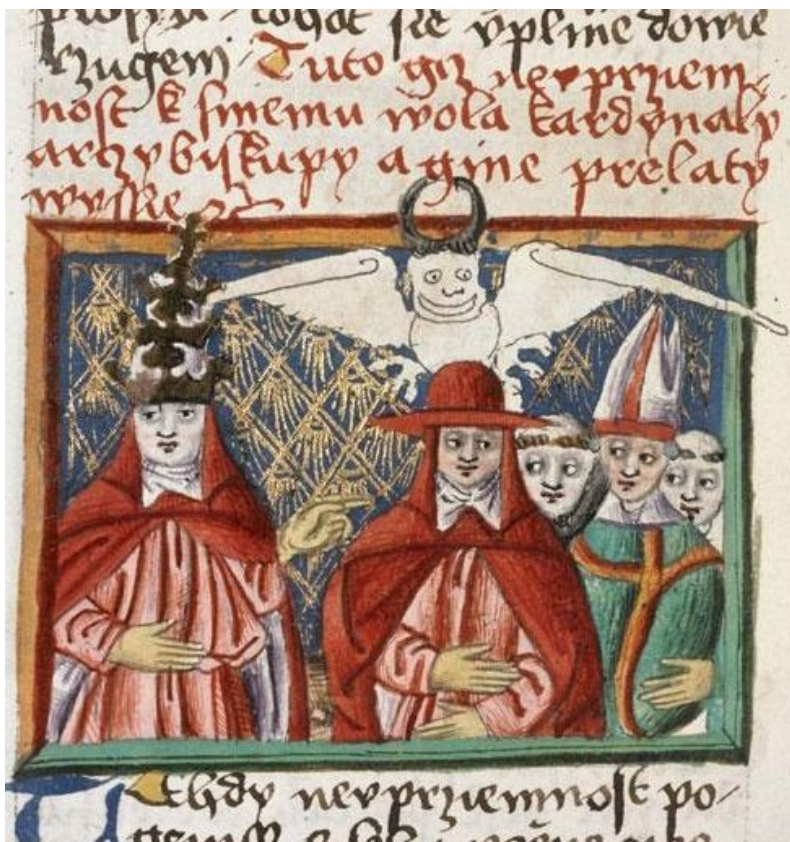 toho ſie vplnie dowie
rzugem Tuto giz nevprziem-
noſt k ſniemu wola kardynaly
arczybiſkupy a gine prelaty
wyſſke
Tehdy nevprziemnoſt po-